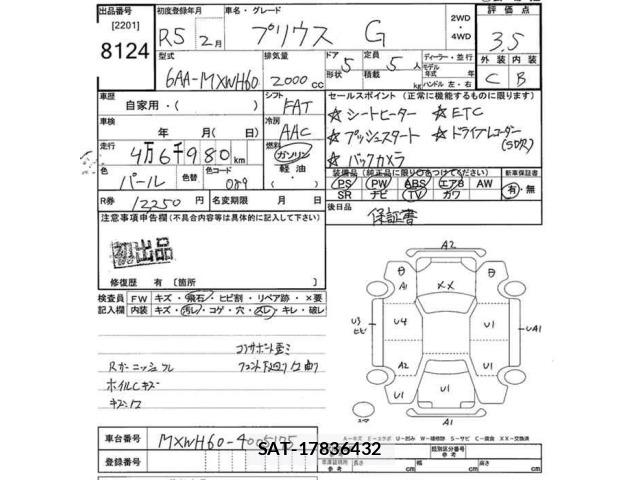 出品番号 初度登録年月 車名・グレード 評価点
[2201] R5 2月 プリウス G 2WD ・ 4WD 3.5
8124 型式 排気量 ドア 形状 5 定員 5人 積載 kg ディーラー・並行 モデル 年式 年 ハンドル 左・右 外装 内装
6AA-MXWH60 2000cc C B
車歴 自家用・( ) シフト FAT セールスポイント (正常に機能するものに限ります)
車検 年 月( 日) 冷房 AAC ☆ シートヒーター ☆ ETC
☆ プッシュスタート ☆ ドライブレコーダー
走行 4万6千980km 燃料 ガソリン 軽油 ☆ バックカメラ
色 パール 色替 色コード 089 装備品 (純正品に限り○をつけてください) 新車保証書
PS PW ABS エアB AW 有・無
SR ナビ TV カワ
R券 12250円 名変期限 月 日 後日品 保証書
注意事項申告欄(不具合内容等は具体的に記入して下さい)
初出品
修復歴 有〔箇所 〕
検査員 記入欄 FW キズ・飛石・ヒビ割・リペア跡・×要
内装 キズ・汚レ・コゲ・穴・スレ・キレ・破レ
コアサポート歪ミ
Rガーニッシュフレ
ホイルCキズ
A2
A1 XX
U3 ヒビ U4 U1 UA1
A2 U1 U1
U1
A1
車台番号 MXWH60-4005175
SAT-17836432
登録番号
A-キズ E-エクボ U-凹み W-補修跡 S-サビ C-腐食 XX-交換済
類別区分番号
参考 長さ cm 幅 cm 高さ cm